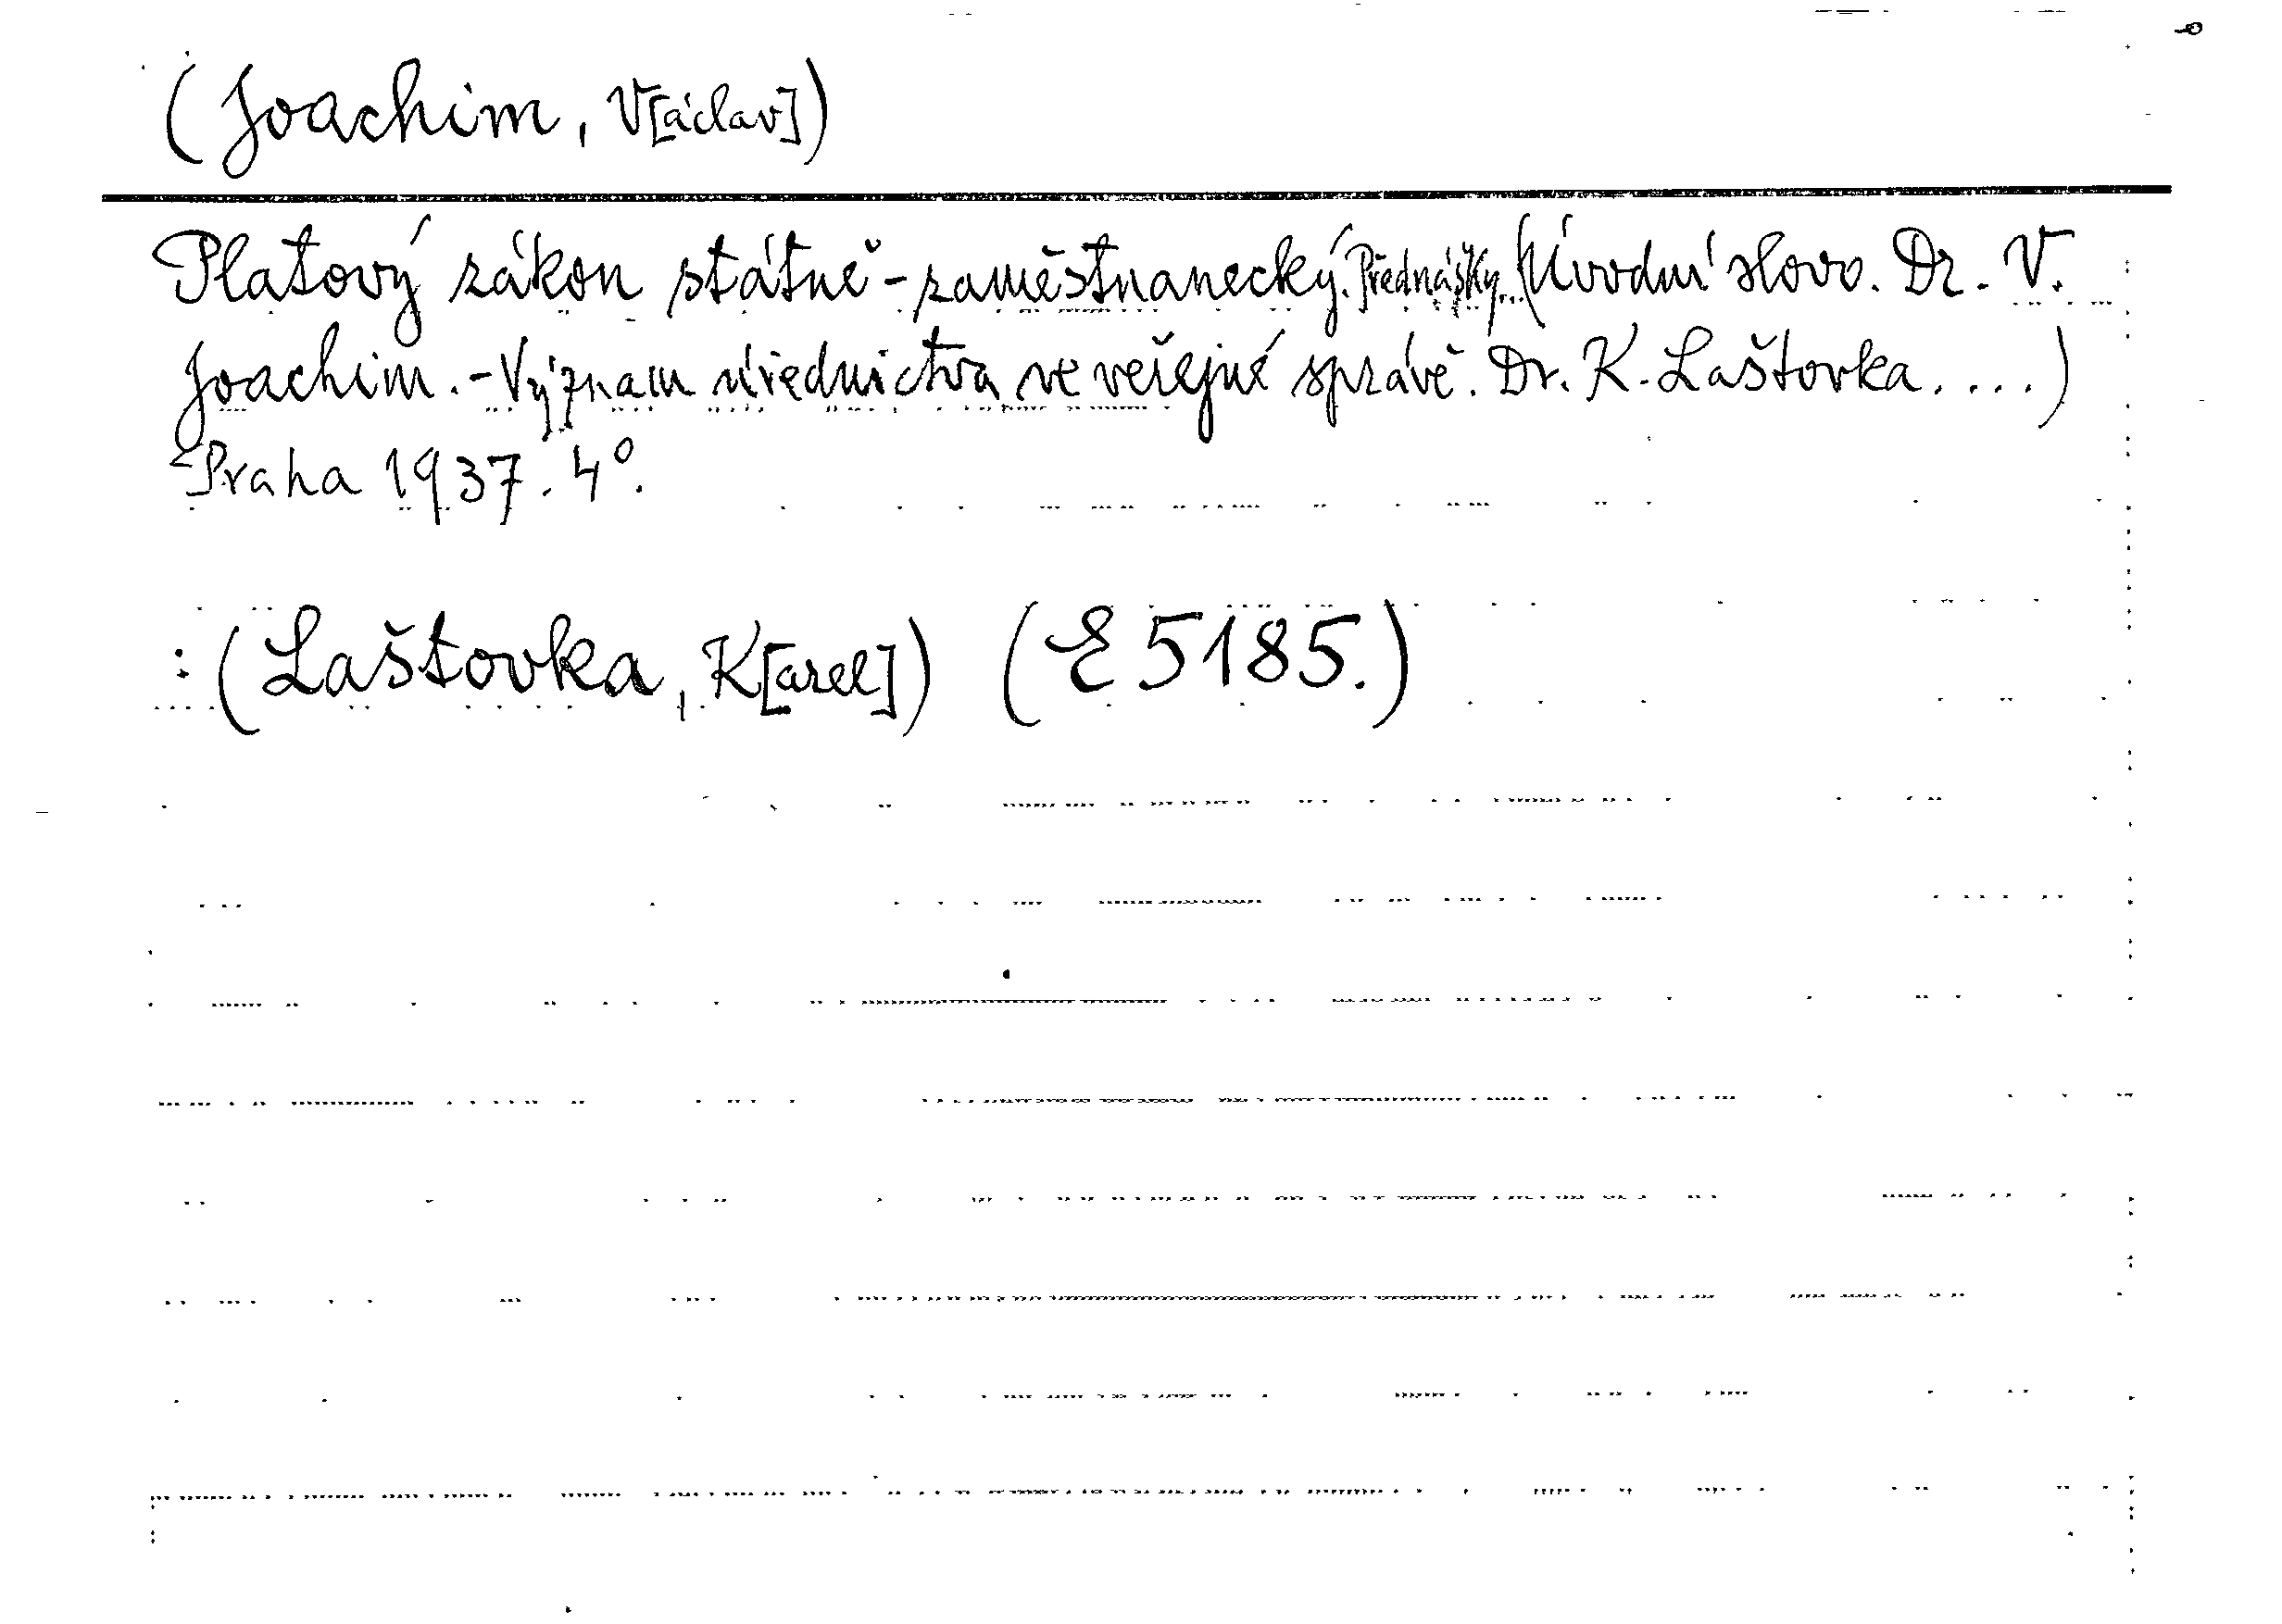 (Joachim, V[áclav])
Platový zákon státně-zaměstnanecký. Přednášky...(Úvodní slovo. Dr. V.
Joachim. - Význam úřednictva ve veřejné správě. Dr. K. Laštovka. ...)
Praha 1937. 4°.
: (Laštovka, K[arel]) (E 5185.)